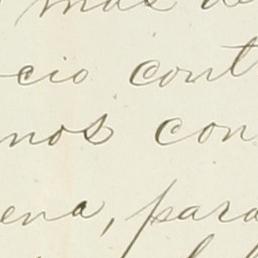 mas de
cio cont
nos con
ena, para